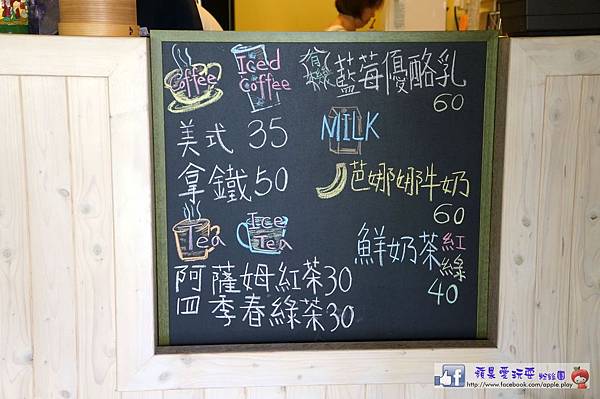 Coffee
Iced
Coffee
美式 35
拿鐵50
Tea
Ice
Tea
阿薩姆紅茶30
四季春綠茶30
藍莓優酪乳
60
MILK
芭娜娜牛奶
60
鮮奶茶紅
綠
40
蘋果愛玩耍 粉絲團
http://www.facebook.com/apple.play